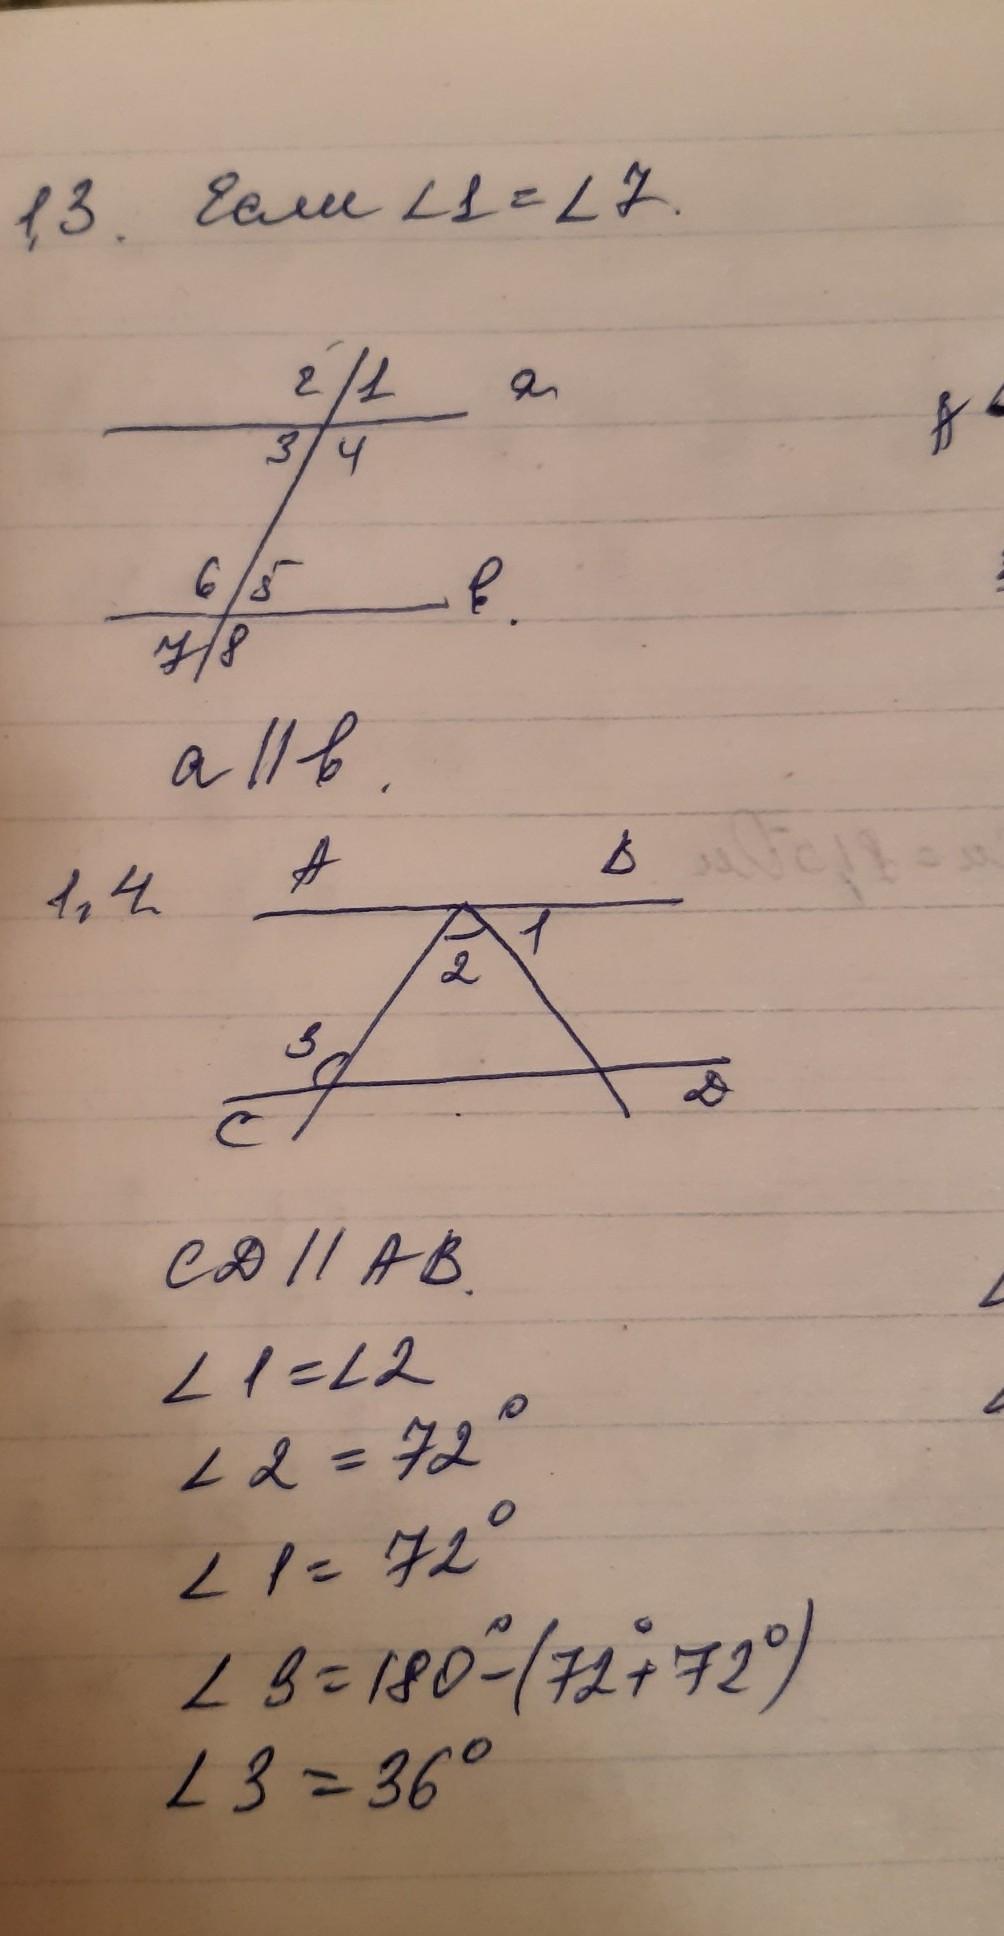 1,3. Если ∠1=∠7.
2 1 a
3 4
6 5 в.
7 8
a∥в.
1,4. A B
1
2
3
C D
CD∥AB.
∠1=∠2
∠2=72°
∠1=72°
∠3=180°-(72°+72°)
∠3=36°